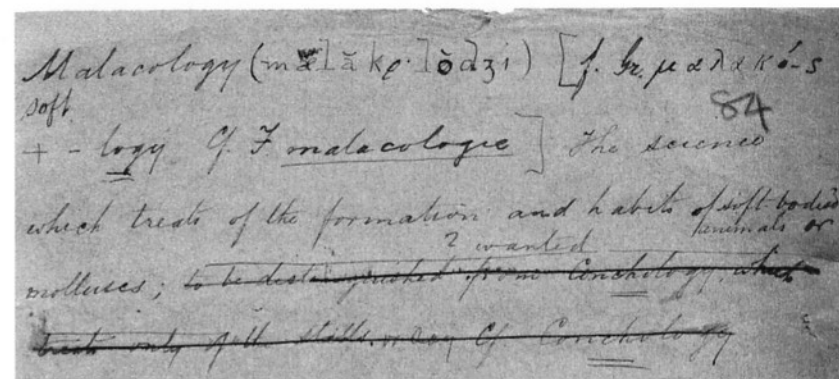 Malacology (mælăkǫ·lŏdʒi) [f. Gr. μαλακό-s
soft
84
+ -logy Cf F. malacologie] The science
which treats of the formation and habits of soft-bodied
animals or
? wanted
molluscs; to be distinguished from Conchology, which
treats only of the shells. Cf Conchology